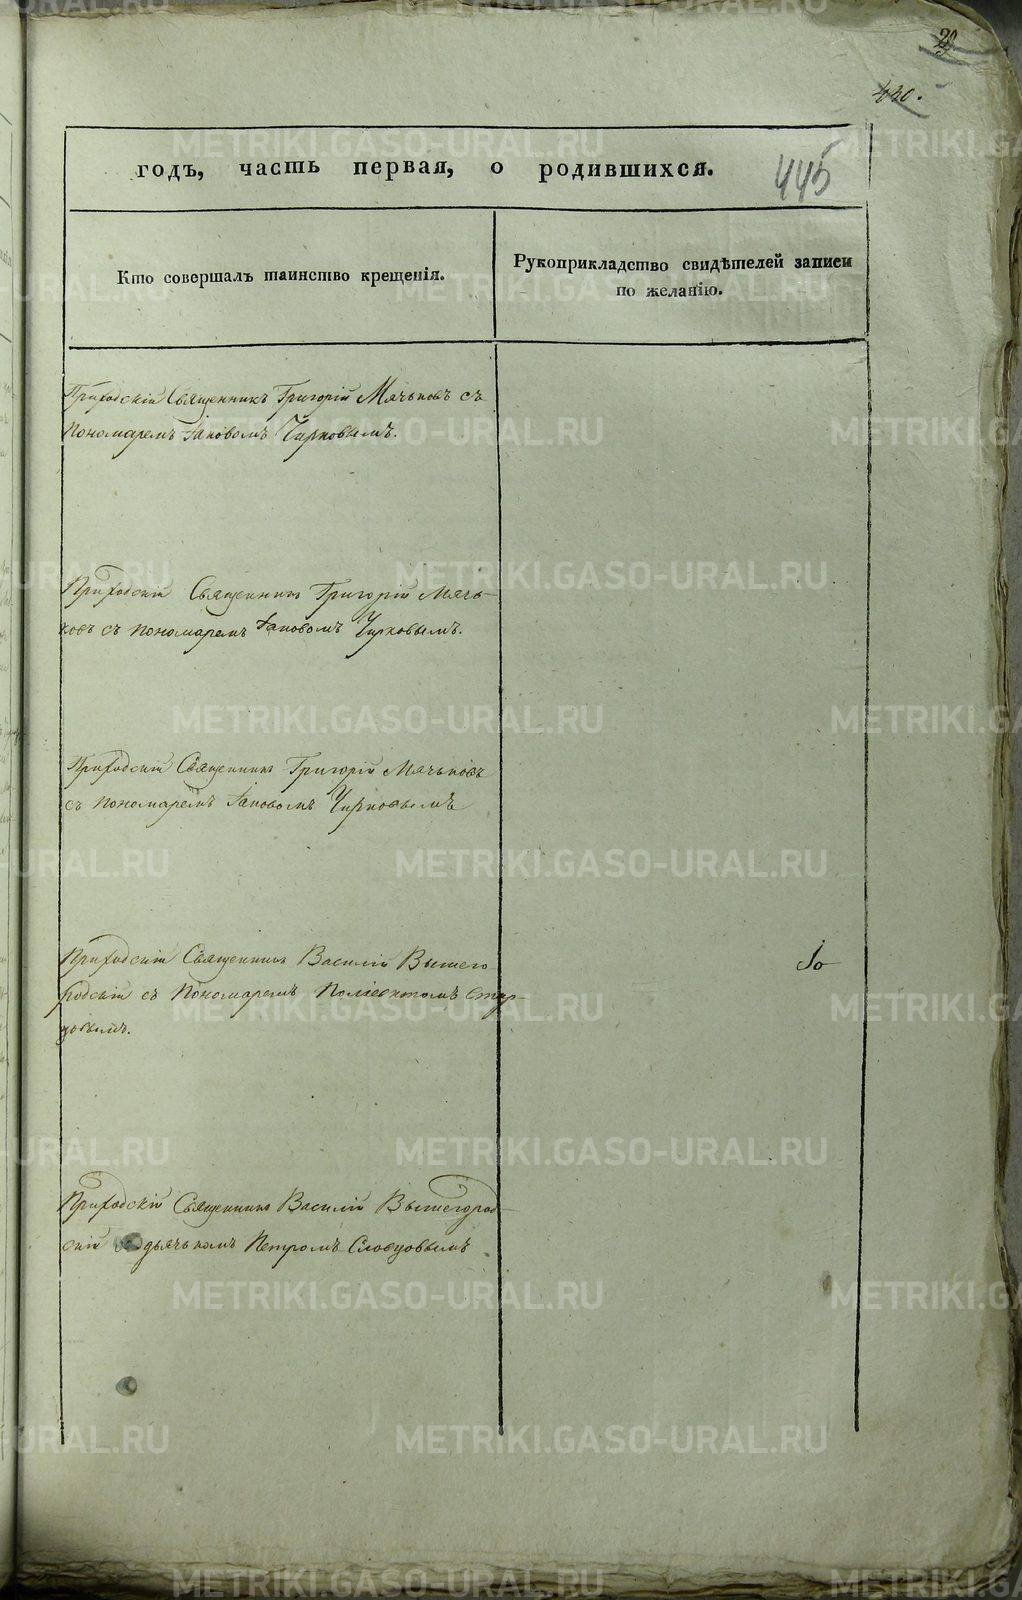 29
430.
годъ, часть первая, о родившихся.
445
Кто совершалъ таинство крещенія.
Рукоприкладство свидѣтелей записи
по желанію.
Приходскій Священникъ Григорій Мячьковъ съ
Пономаремъ Іаковомъ Чирковымъ.
Приходскій Священникъ Григорій Мячь-
ковъ съ пономаремъ Іаковомъ Чирковымъ.
Приходскій Священникъ Григорій Мячьковъ
съ пономаремъ Іаковомъ Чирковымъ
Приходскій Священникъ Василій Вышего
родскій съ Пономаремъ Поліевктомъ Стар-
цовымъ.
Приходскій Священникъ Василій Вышегород-
скій дьячькомъ Петромъ Словцовымъ
METRIKI.GASO-URAL.RU